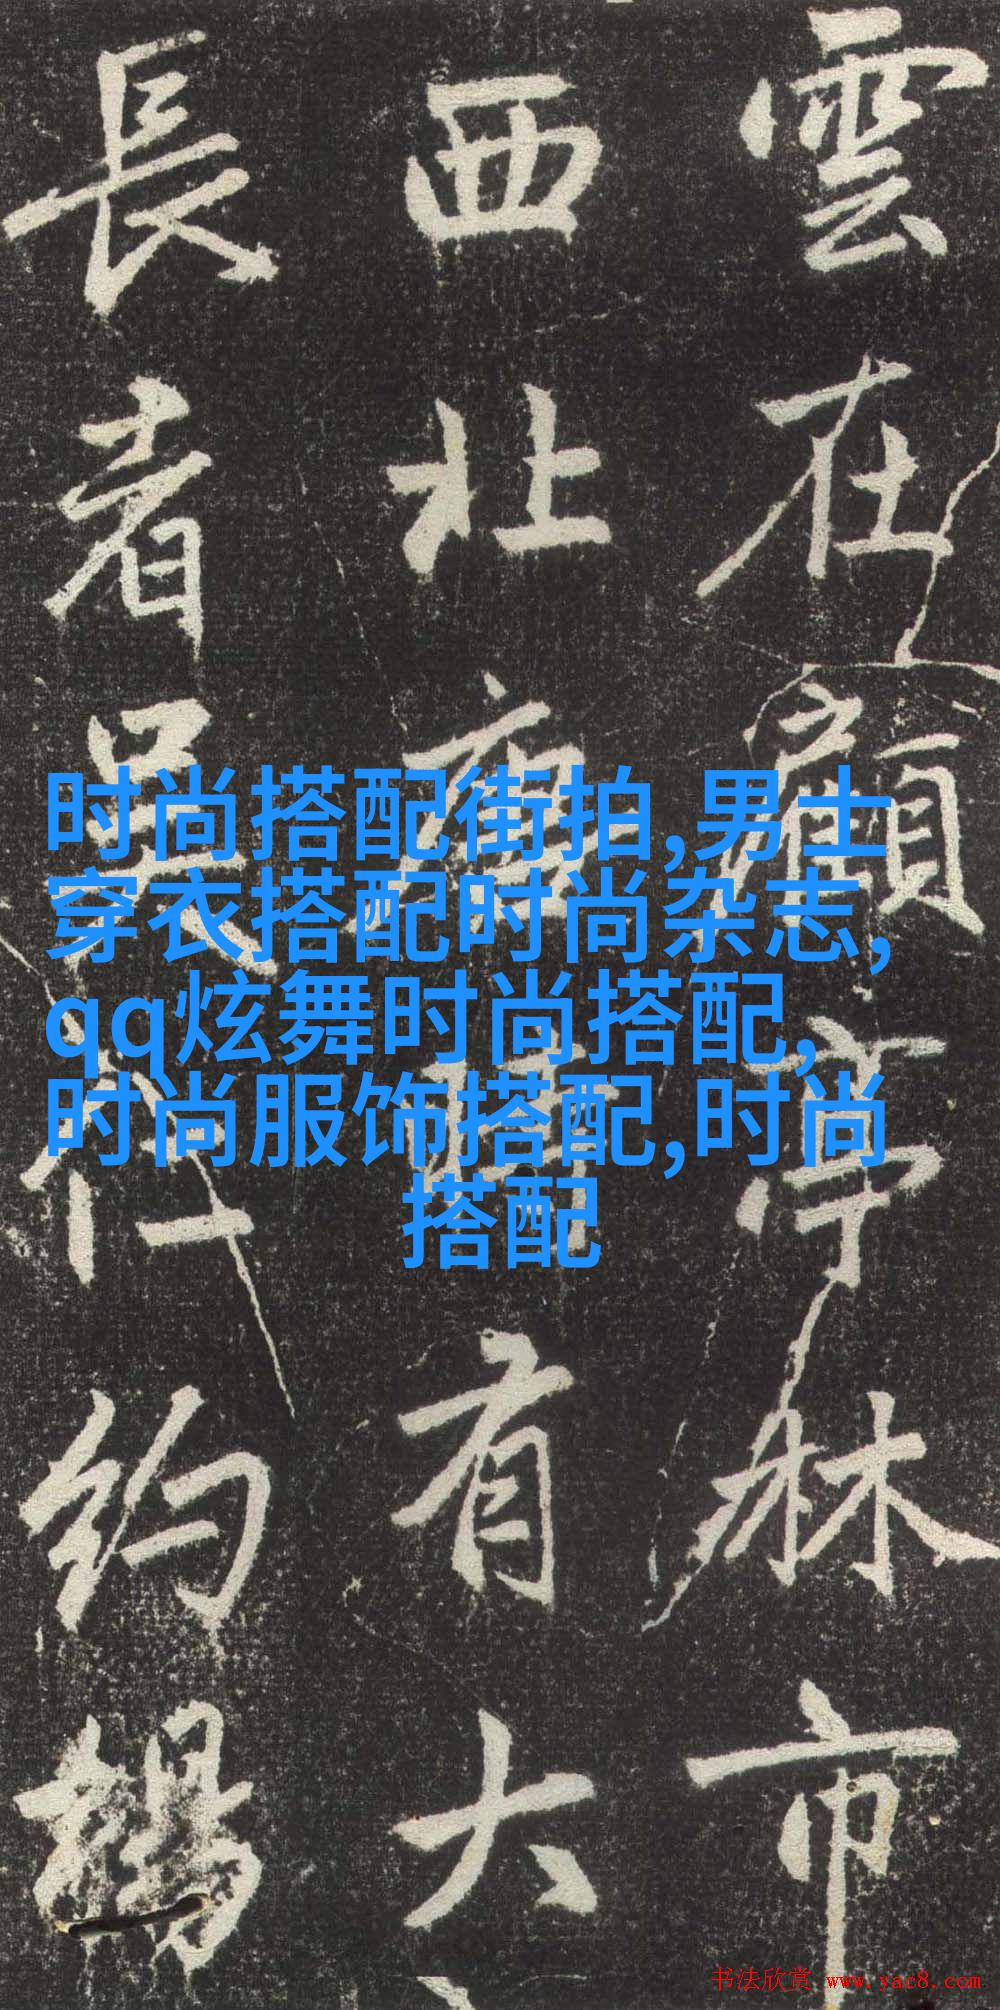 雲在顧亭林市
西北有大
長者吳約
时尚搭配街拍,男士
穿衣搭配时尚杂志,
qq炫舞时尚搭配,
时尚服饰搭配,时尚
搭配
书法欣赏 www.yac8.com